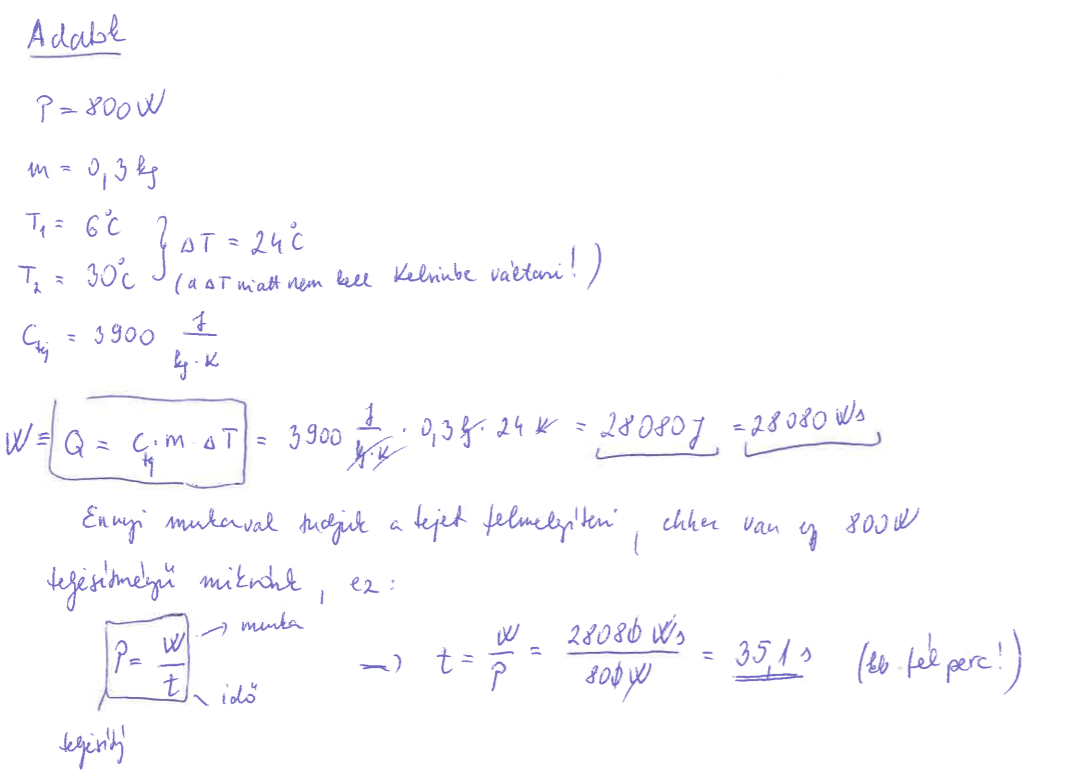 Adatok
P = 800 W
m = 0,3 kg
T₁ = 6°C
T₂ = 30°C } ΔT = 24°C
(a ΔT miatt nem kell Kelvinbe váltani!)
C_tej = 3900 J / kg·K
W ≡ Q = C_tej · m · ΔT = 3900 J / kg·K · 0,3 kg · 24 K = 28080 J = 28080 Ws
Ennyi munkával tudjuk a tejet felmelegíteni, ehhez van egy 800 W
teljesítményű mikrónk, ez:
P = W / t → munka
↘ idő
→ t = W / P = 28080 Ws / 800 W = 35,1 s (kb. fél perc!)
teljesítmény